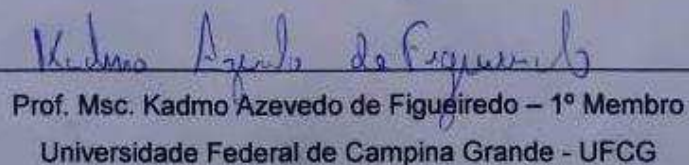 Kadmo Azevedo de Figueiredo
Prof. Msc. Kadmo Azevedo de Figueiredo – 1º Membro
Universidade Federal de Campina Grande - UFCG